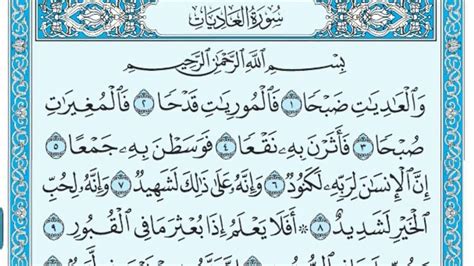 سُورَةُ العَادِيَات
بِسْمِ ٱللَّهِ ٱلرَّحْمَٰنِ ٱلرَّحِيمِ
وَٱلْعَٰدِيَٰتِ ضَبْحًا ١ فَٱلْمُورِيَٰتِ قَدْحًا ٢ فَٱلْمُغِيرَٰتِ
صُبْحًا ٣ فَأَثَرْنَ بِهِۦ نَقْعًا ٤ فَوَسَطْنَ بِهِۦ جَمْعًا ٥
إِنَّ ٱلْإِنسَٰنَ لِرَبِّهِۦ لَكَنُودٌ ٦ وَإِنَّهُۥ عَلَىٰ ذَٰلِكَ لَشَهِيدٌ ٧ وَإِنَّهُۥ لِحُبِّ
ٱلْخَيْرِ لَشَدِيدٌ ٨ ۞ أَفَلَا يَعْلَمُ إِذَا بُعْثِرَ مَا فِي ٱلْقُبُورِ ٩